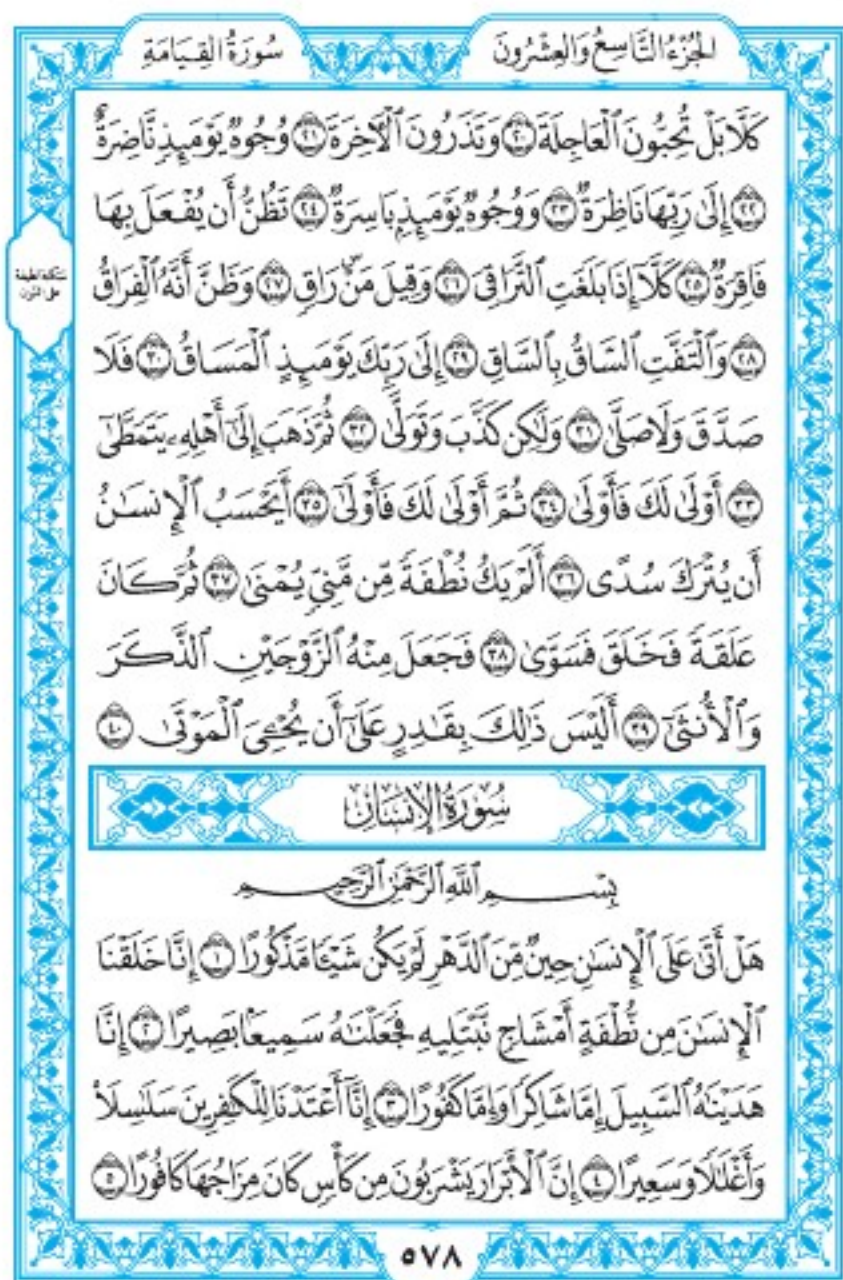 سُورَةُ القِيَامَةِ
الجُزْءُ التَّاسِعُ وَالعِشْرُونَ
كَلَّا بَلْ تُحِبُّونَ ٱلْعَاجِلَةَ ٢٠ وَتَذَرُونَ ٱلْأٓخِرَةَ ٢١ وُجُوهٌ يَوْمَئِذٍ نَّاضِرَةٌ
٢٢ إِلَىٰ رَبِّهَا نَاظِرَةٌ ٢٣ وَوُجُوهٌ يَوْمَئِذٍۭ بَاسِرَةٌ ٢٤ تَظُنُّ أَن يُفْعَلَ بِهَا
فَاقِرَةٌ ٢٥ كَلَّآ إِذَا بَلَغَتِ ٱلتَّرَاقِيَ ٢٦ وَقِيلَ مَنْۜ رَاقٍ ٢٧ وَظَنَّ أَنَّهُ ٱلْفِرَاقُ
٢٨ وَٱلْتَفَّتِ ٱلسَّاقُ بِٱلسَّاقِ ٢٩ إِلَىٰ رَبِّكَ يَوْمَئِذٍ ٱلْمَسَاقُ ٣٠ فَلَا
صَدَّقَ وَلَا صَلَّىٰ ٣١ وَلَٰكِن كَذَّبَ وَتَوَلَّىٰ ٣٢ ثُمَّ ذَهَبَ إِلَىٰٓ أَهْلِهِۦ يَتَمَطَّىٰٓ
٣٣ أَوْلَىٰ لَكَ فَأَوْلَىٰ ٣٤ ثُمَّ أَوْلَىٰ لَكَ فَأَوْلَىٰٓ ٣٥ أَيَحْسَبُ ٱلْإِنسَٰنُ
أَن يُتْرَكَ سُدًى ٣٦ أَلَمْ يَكُ نُطْفَةً مِّن مَّنِىٍّ يُمْنَىٰ ٣٧ ثُمَّ كَانَ
عَلَقَةً فَخَلَقَ فَسَوَّىٰ ٣٨ فَجَعَلَ مِنْهُ ٱلزَّوْجَيْنِ ٱلذَّكَرَ
وَٱلْأُنثَىٰٓ ٣٩ أَلَيْسَ ذَٰلِكَ بِقَٰدِرٍ عَلَىٰٓ أَن يُحْۦِىَ ٱلْمَوْتَىٰ ٤٠
سُورَةُ الإِنسَانِ
بِسْمِ ٱللَّهِ ٱلرَّحْمَٰنِ ٱلرَّحِيمِ
هَلْ أَتَىٰ عَلَى ٱلْإِنسَٰنِ حِينٌ مِّنَ ٱلدَّهْرِ لَمْ يَكُن شَيْـًٔا مَّذْكُورًا ١ إِنَّا خَلَقْنَا
ٱلْإِنسَٰنَ مِن نُّطْفَةٍ أَمْشَاجٍ نَّبْتَلِيهِ فَجَعَلْنَٰهُ سَمِيعًۢا بَصِيرًا ٢ إِنَّا
هَدَيْنَٰهُ ٱلسَّبِيلَ إِمَّا شَاكِرًا وَإِمَّا كَفُورًا ٣ إِنَّآ أَعْتَدْنَا لِلْكَٰفِرِينَ سَلَٰسِلَا۟
وَأَغْلَٰلًا وَسَعِيرًا ٤ إِنَّ ٱلْأَبْرَارَ يَشْرَبُونَ مِن كَأْسٍ كَانَ مِزَاجُهَا كَافُورًا ٥
٥٧٨